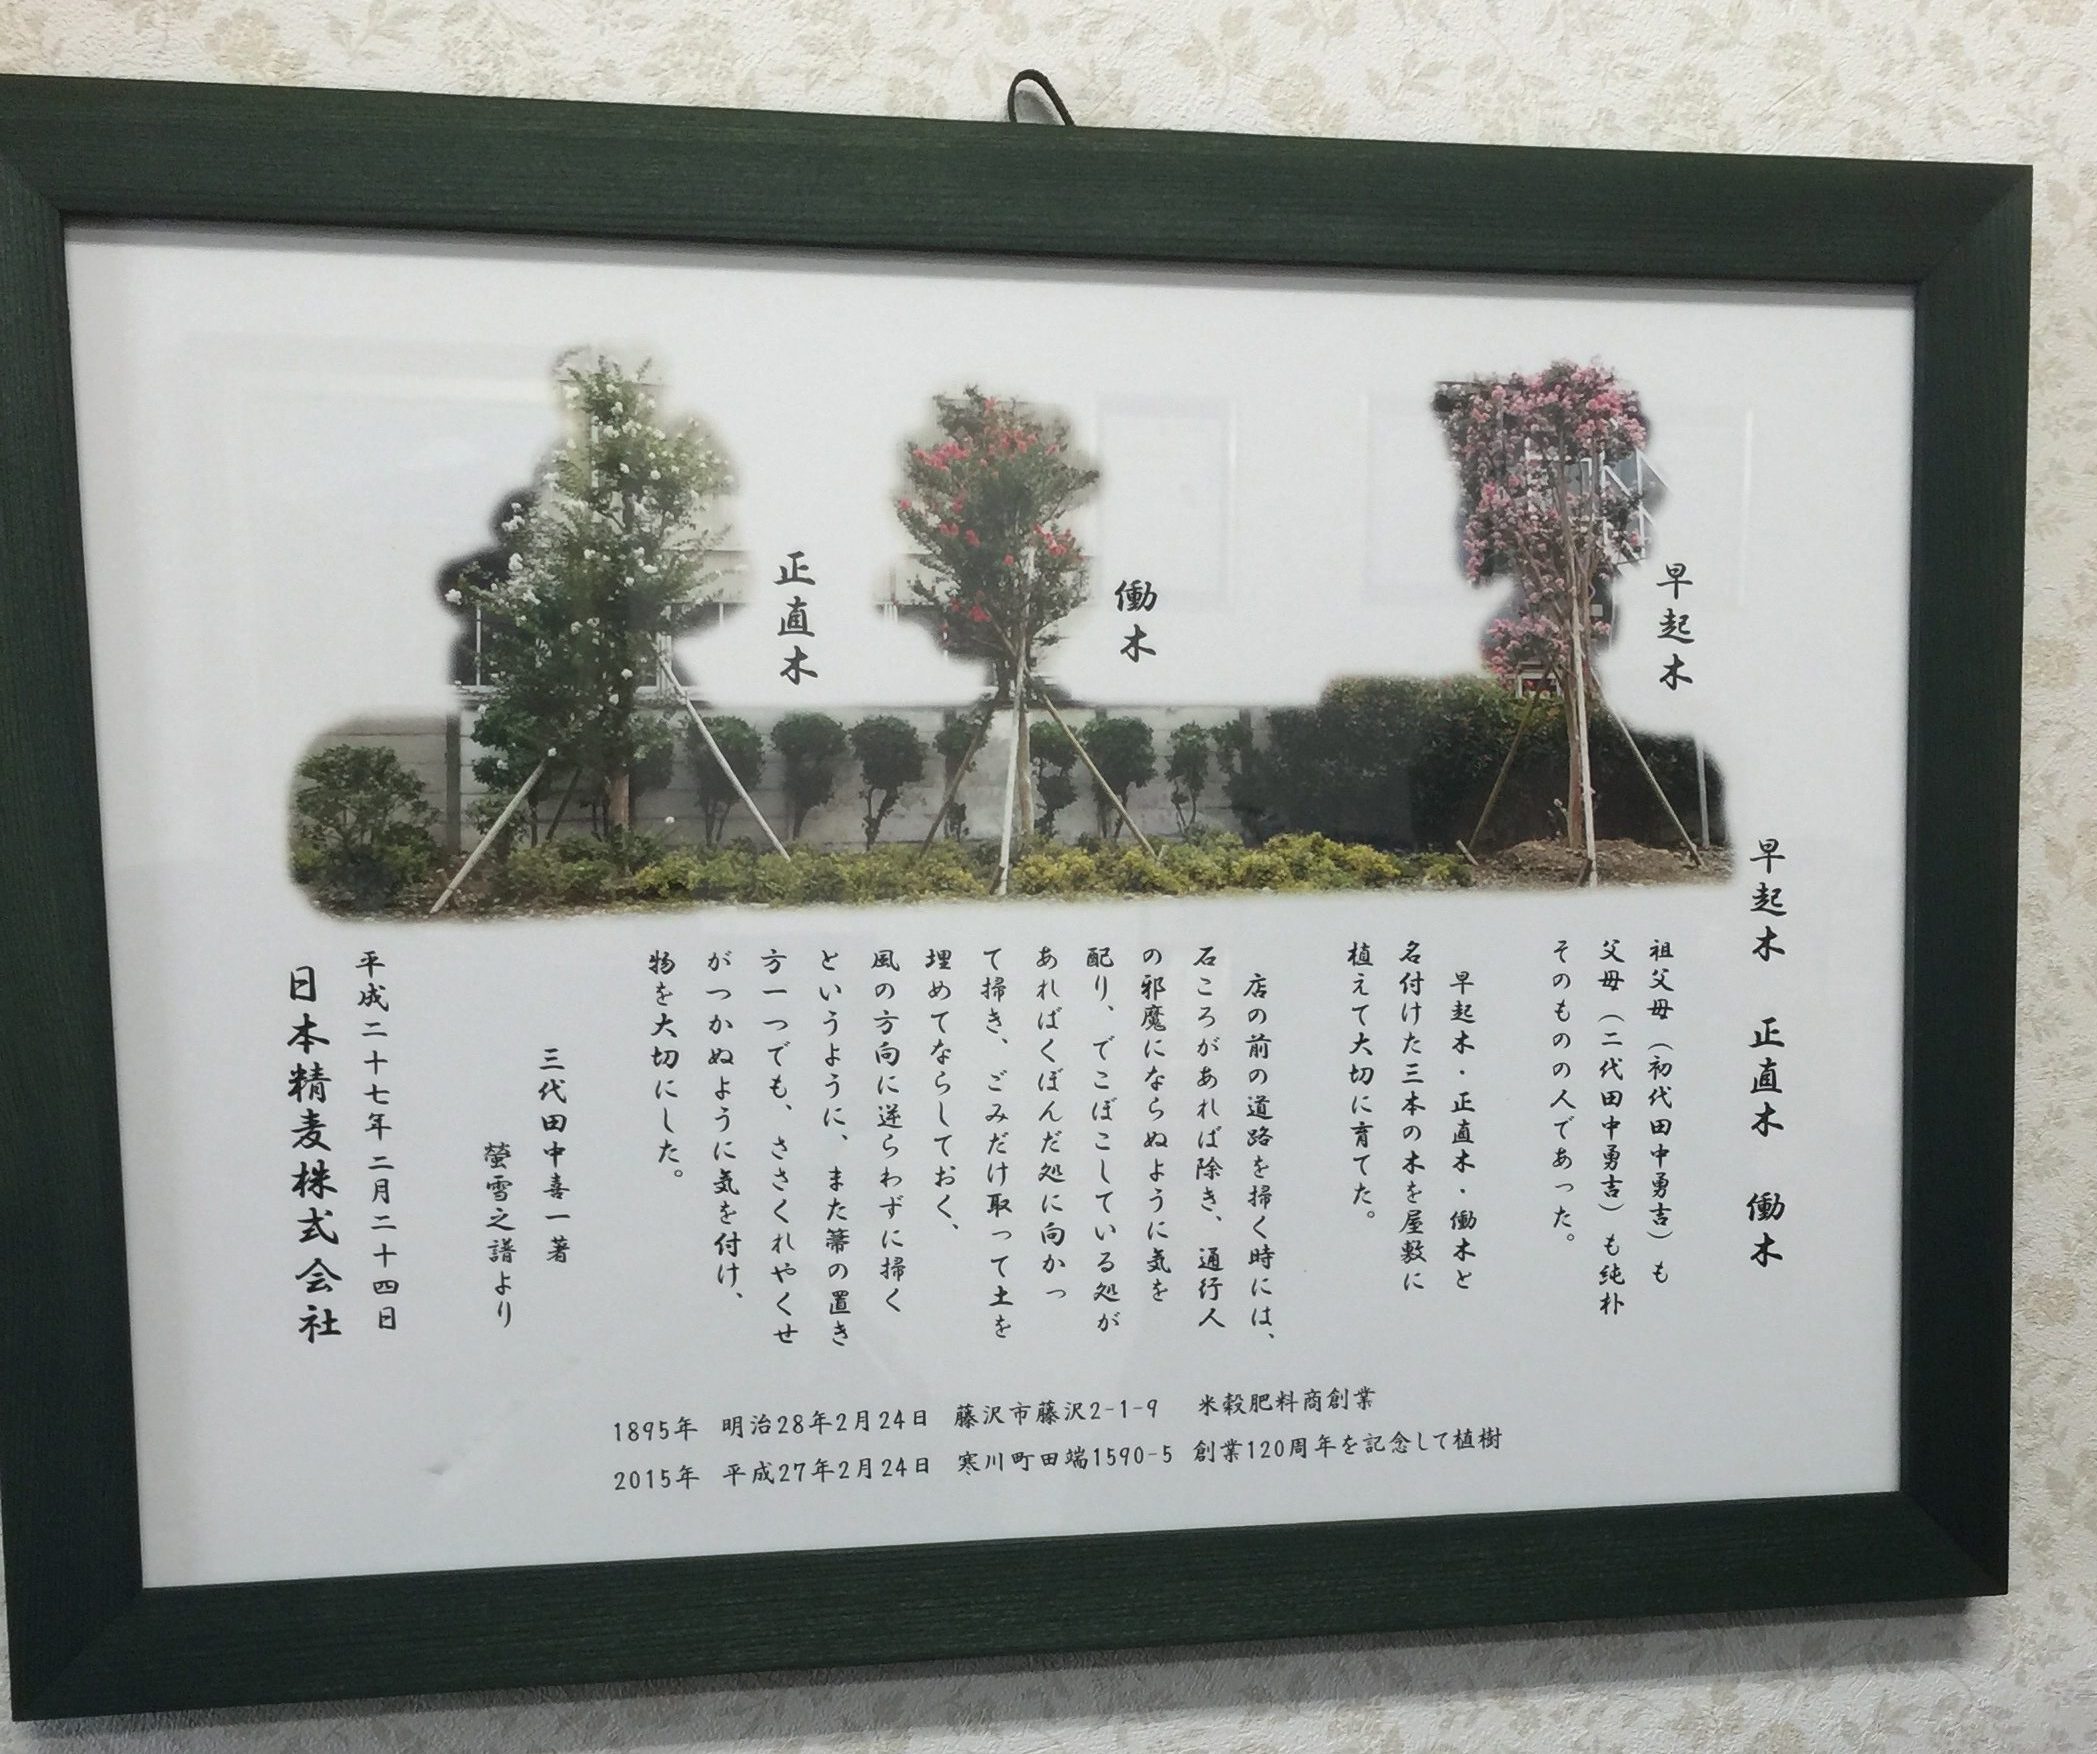 早起木
働木
正直木
早起木　正直木　働木
祖父母（初代田中勇吉）も
父母（二代田中勇吉）も純朴
そのものの人であった。
早起木・正直木・働木と
名付けた三本の木を屋敷に
植えて大切に育てた。
店の前の道路を掃く時には、
石ころがあれば除き、通行人
の邪魔にならぬように気を
配り、でこぼこしている処が
あればくぼんだ処に向かっ
て掃き、ごみだけ取って土を
埋めてならしておく、
風の方向に逆らわずに掃く
というように、また箒の置き
方一つでも、ささくれやくせ
がつかぬように気を付け、
物を大切にした。
三代田中喜一著
螢雪之譜より
平成二十七年二月二十四日
日本精麦株式会社
1895年　明治28年2月24日　藤沢市藤沢2-1-9　米穀肥料商創業
2015年　平成27年2月24日　寒川町田端1590-5　創業120周年を記念して植樹